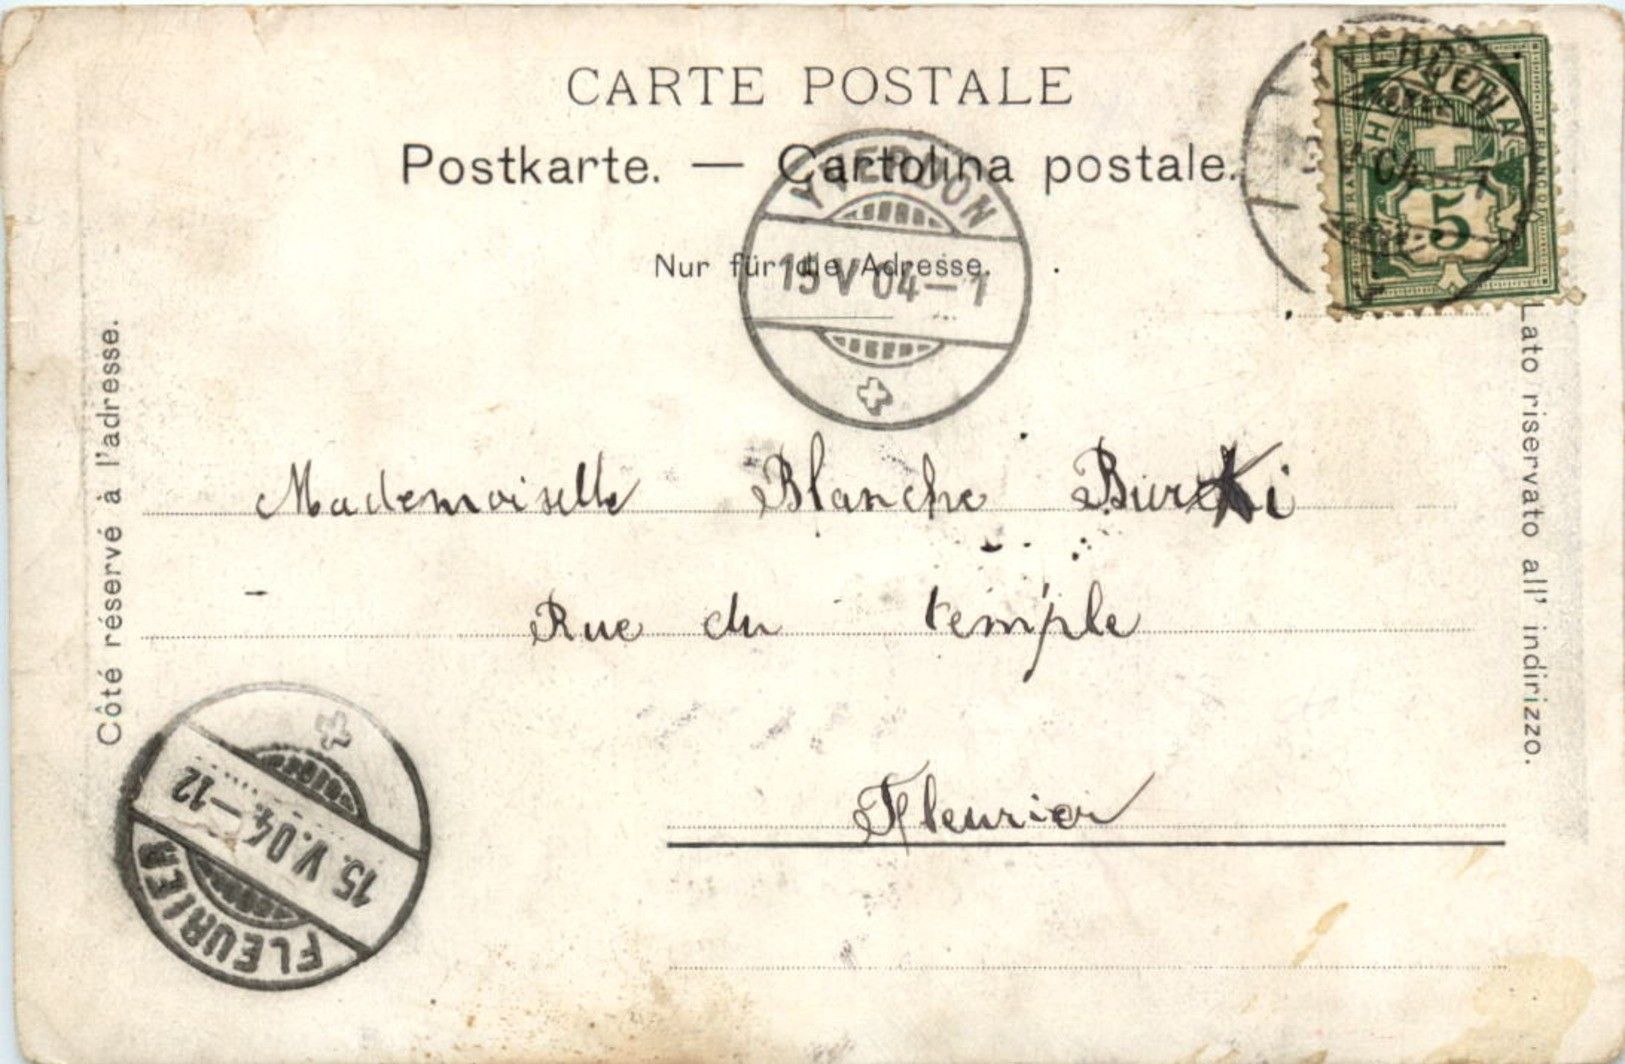 CARTE POSTALE
Postkarte. — Cartolina postale.
Nur für die Adresse.
YVERDON
15 V 04 – 1
YVERDON
04 – 1
FRANCO
5
Côté réservé à l'adresse.
Lato riservato all' indirizzo.
Mademoiselle Blanche Burki
Rue du temple
Fleurier
FLEURIER
15. V. 04. – 12